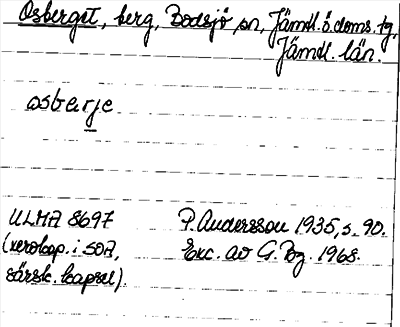 Osberget, berg, Bodsjö sn, Jämtl. ö. doms. tg,
Jämtl. län.
osberje
ULMA 8697 P. Andersson 1935, s. 90.
(xerokop. i SOA, Exc. av G. Bg. 1968.
särsk. kapsel).